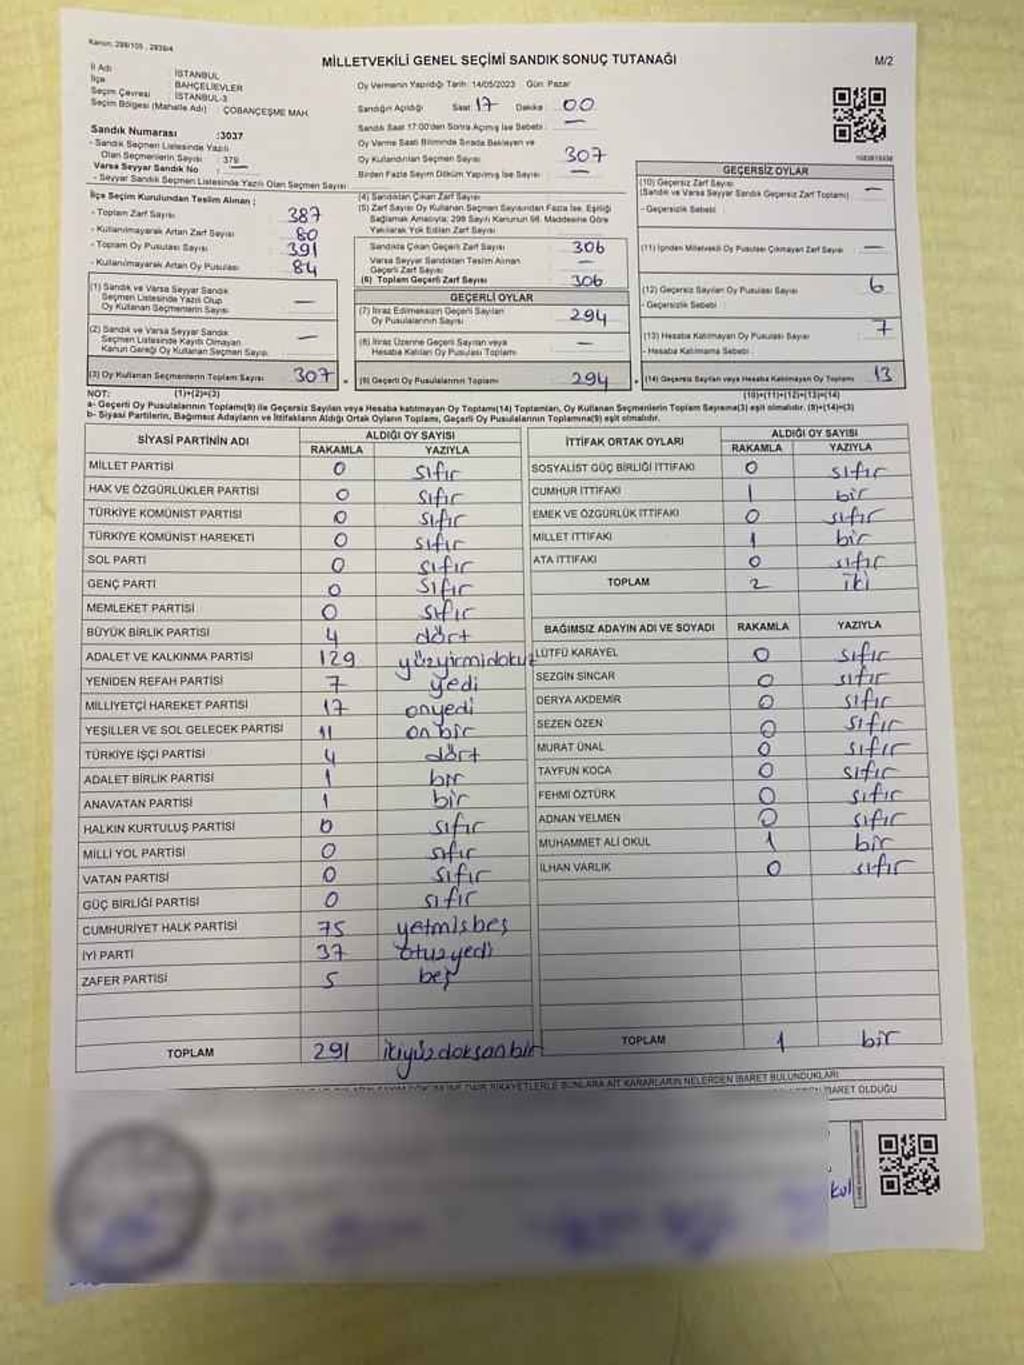 Kanun: 298/105 , 2839/4
MİLLETVEKİLİ GENEL SEÇİMİ SANDIK SONUÇ TUTANAĞI
M/2
İl Adı İSTANBUL
İlçe BAHÇELİEVLER
Seçim Çevresi İSTANBUL-3
Seçim Bölgesi (Mahalle Adı) ÇOBANÇEŞME MAH.
Sandık Numarası :3037
- Sandık Seçmen Listesinde Yazılı
Olan Seçmenlerin Sayısı : 379
Varsa Seyyar Sandık No : —
- Seyyar Sandık Seçmen Listesinde Yazılı Olan Seçmen Sayısı
Oy Vermenin Yapıldığı Tarih: 14/05/2023 Gün: Pazar
Sandığın Açıldığı Saat 17 Dakika 00
Sandık Saat 17:00'den Sonra Açılmış İse Sebebi : —
Oy Verme Saati Bitiminde Sırada Bekleyen ve
Oy Kullandırılan Seçmen Sayısı 307
Birden Fazla Sayım Döküm Yapılmış İse Sayısı —
İlçe Seçim Kurulundan Teslim Alınan ;
- Toplam Zarf Sayısı 387
- Kullanılmayarak Artan Zarf Sayısı 80
- Toplam Oy Pusulası Sayısı 391
- Kullanılmayarak Artan Oy Pusulası 84
(1) Sandık ve Varsa Seyyar Sandık
Seçmen Listesinde Yazılı Olup
Oy Kullanan Seçmenlerin Sayısı —
(2) Sandık ve Varsa Seyyar Sandık
Seçmen Listesinde Kayıtlı Olmayan
Kanun Gereği Oy Kullanan Seçmen Sayısı —
(3) Oy Kullanan Seçmenlerin Toplam Sayısı 307
(1)+(2)=(3)
(4) Sandıktan Çıkan Zarf Sayısı
(5) Zarf Sayısı Oy Kullanan Seçmen Sayısından Fazla İse, Eşitliği
Sağlamak Amacıyla; 298 Sayılı Kanunun 98. Maddesine Göre
Yakılarak Yok Edilen Zarf Sayısı
Sandıkta Çıkan Geçerli Zarf Sayısı 306
Varsa Seyyar Sandıktan Teslim Alınan
Geçerli Zarf Sayısı —
(6) Toplam Geçerli Zarf Sayısı 306
GEÇERLİ OYLAR
(7) İtiraz Edilmeksizin Geçerli Sayılan
Oy Pusulalarının Sayısı 294
(8) İtiraz Üzerine Geçerli Sayılan veya
Hesaba Katılan Oy Pusulası Toplamı —
(9) Geçerli Oy Pusulalarının Toplamı 294
GEÇERSİZ OYLAR
(10) Geçersiz Zarf Sayısı
(Sandık ve Varsa Seyyar Sandık Geçersiz Zarf Toplamı) —
- Geçersizlik Sebebi :
(11) İçinden Milletvekili Oy Pusulası Çıkmayan Zarf Sayısı —
(12) Geçersiz Sayılan Oy Pusulası Sayısı 6
- Geçersizlik Sebebi :
(13) Hesaba Katılmayan Oy Pusulası Sayısı 7
- Hesaba Katılmama Sebebi :
(14) Geçersiz Sayılan veya Hesaba Katılmayan Oy Toplamı 13
(10)+(11)+(12)+(13)=(14)
NOT:
a- Geçerli Oy Pusulalarının Toplamı(9) ile Geçersiz Sayılan veya Hesaba katılmayan Oy Toplamı(14) Toplamları, Oy Kullanan Seçmenlerin Toplam Sayısına(3) eşit olmalıdır. (9)+(14)=(3)
b- Siyasi Partilerin, Bağımsız Adayların ve İttifakların Aldığı Ortak Oyların Toplamı, Geçerli Oy Pusulalarının Toplamına(9) eşit olmalıdır.
SİYASİ PARTİNİN ADI ALDIĞI OY SAYISI
RAKAMLA YAZIYLA
MİLLET PARTİSİ 0 sıfır
HAK VE ÖZGÜRLÜKLER PARTİSİ 0 sıfır
TÜRKİYE KOMÜNİST PARTİSİ 0 sıfır
TÜRKİYE KOMÜNİST HAREKETİ 0 sıfır
SOL PARTİ 0 sıfır
GENÇ PARTİ 0 sıfır
MEMLEKET PARTİSİ 0 sıfır
BÜYÜK BİRLİK PARTİSİ 4 dört
ADALET VE KALKINMA PARTİSİ 129 yüzyirmidokuz
YENİDEN REFAH PARTİSİ 7 yedi
MİLLİYETÇİ HAREKET PARTİSİ 17 onyedi
YEŞİLLER VE SOL GELECEK PARTİSİ 11 on bir
TÜRKİYE İŞÇİ PARTİSİ 4 dört
ADALET BİRLİK PARTİSİ 1 bir
ANAVATAN PARTİSİ 1 bir
HALKIN KURTULUŞ PARTİSİ 0 sıfır
MİLLİ YOL PARTİSİ 0 sıfır
VATAN PARTİSİ 0 sıfır
GÜÇ BİRLİĞİ PARTİSİ 0 sıfır
CUMHURİYET HALK PARTİSİ 75 yetmişbeş
İYİ PARTİ 37 otuzyedi
ZAFER PARTİSİ 5 beş
TOPLAM 291 ikiyüzdoksanbir
İTTİFAK ORTAK OYLARI ALDIĞI OY SAYISI
RAKAMLA YAZIYLA
SOSYALİST GÜÇ BİRLİĞİ İTTİFAKI 0 sıfır
CUMHUR İTTİFAKI 1 bir
EMEK VE ÖZGÜRLÜK İTTİFAKI 0 sıfır
MİLLET İTTİFAKI 1 bir
ATA İTTİFAKI 0 sıfır
TOPLAM 2 iki
BAĞIMSIZ ADAYIN ADI VE SOYADI RAKAMLA YAZIYLA
LÜTFÜ KARAYEL 0 sıfır
SEZGİN SİNCAR 0 sıfır
DERYA AKDEMİR 0 sıfır
SEZEN ÖZEN 0 sıfır
MURAT ÜNAL 0 sıfır
TAYFUN KOCA 0 sıfır
FEHMİ ÖZTÜRK 0 sıfır
ADNAN YELMEN 0 sıfır
MUHAMMET ALİ OKUL 1 bir
İLHAN VARLIK 0 sıfır
TOPLAM 1 bir
ŞİKAYETLERLE BUNLARA AİT KARARLARIN NELERDEN İBARET BULUNDUKLARI
İBARET OLDUĞU
kul